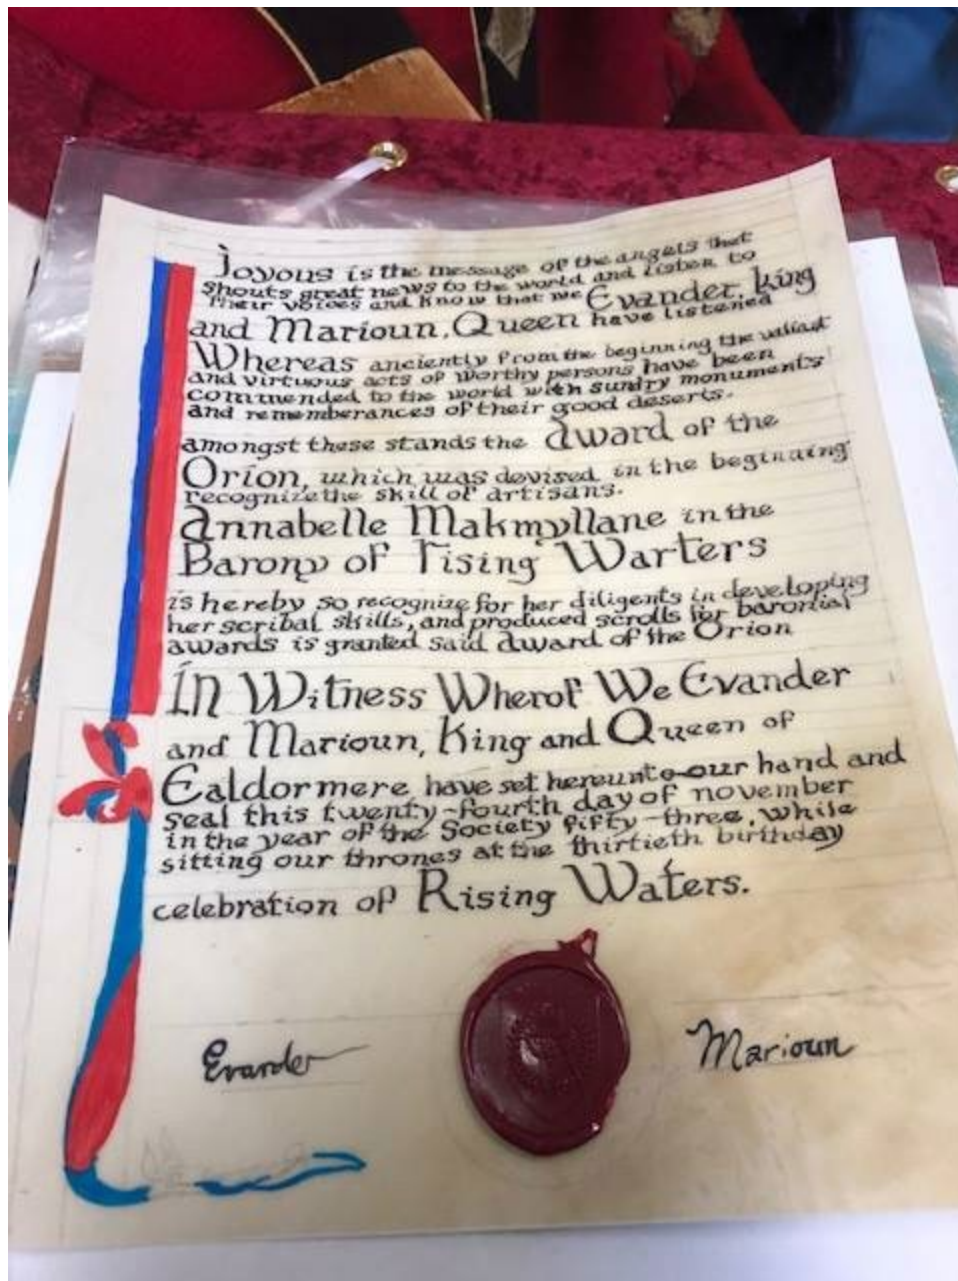 Joyous is the message of the angels that
shouts great news to the world and listen to
their voices and know that we Evander, King
and Marioun, Queen have listened
Whereas anciently from the beginning the valiant
and virtuous acts of worthy persons have been
commended to the world with sundry monuments
and rememberances of their good deserts.
amongst these stands the Award of the
Orion, which was devised in the beginning
recognize the skill of artisans.
Annabelle Makmyllane in the
Barony of rising Warters
is hereby so recognize for her diligents in developing
her scribal skills, and produced scrolls for baronial
awards is granted said Award of the Orion
In Witness Wherof We Evander
and Marioun, King and Queen of
Ealdormere have set hereunto our hand and
seal this twenty-fourth day of november
in the year of the Society fifty-three, while
sitting our thrones at the thirtieth birthday
celebration of Rising Waters.
Evander
Marioun